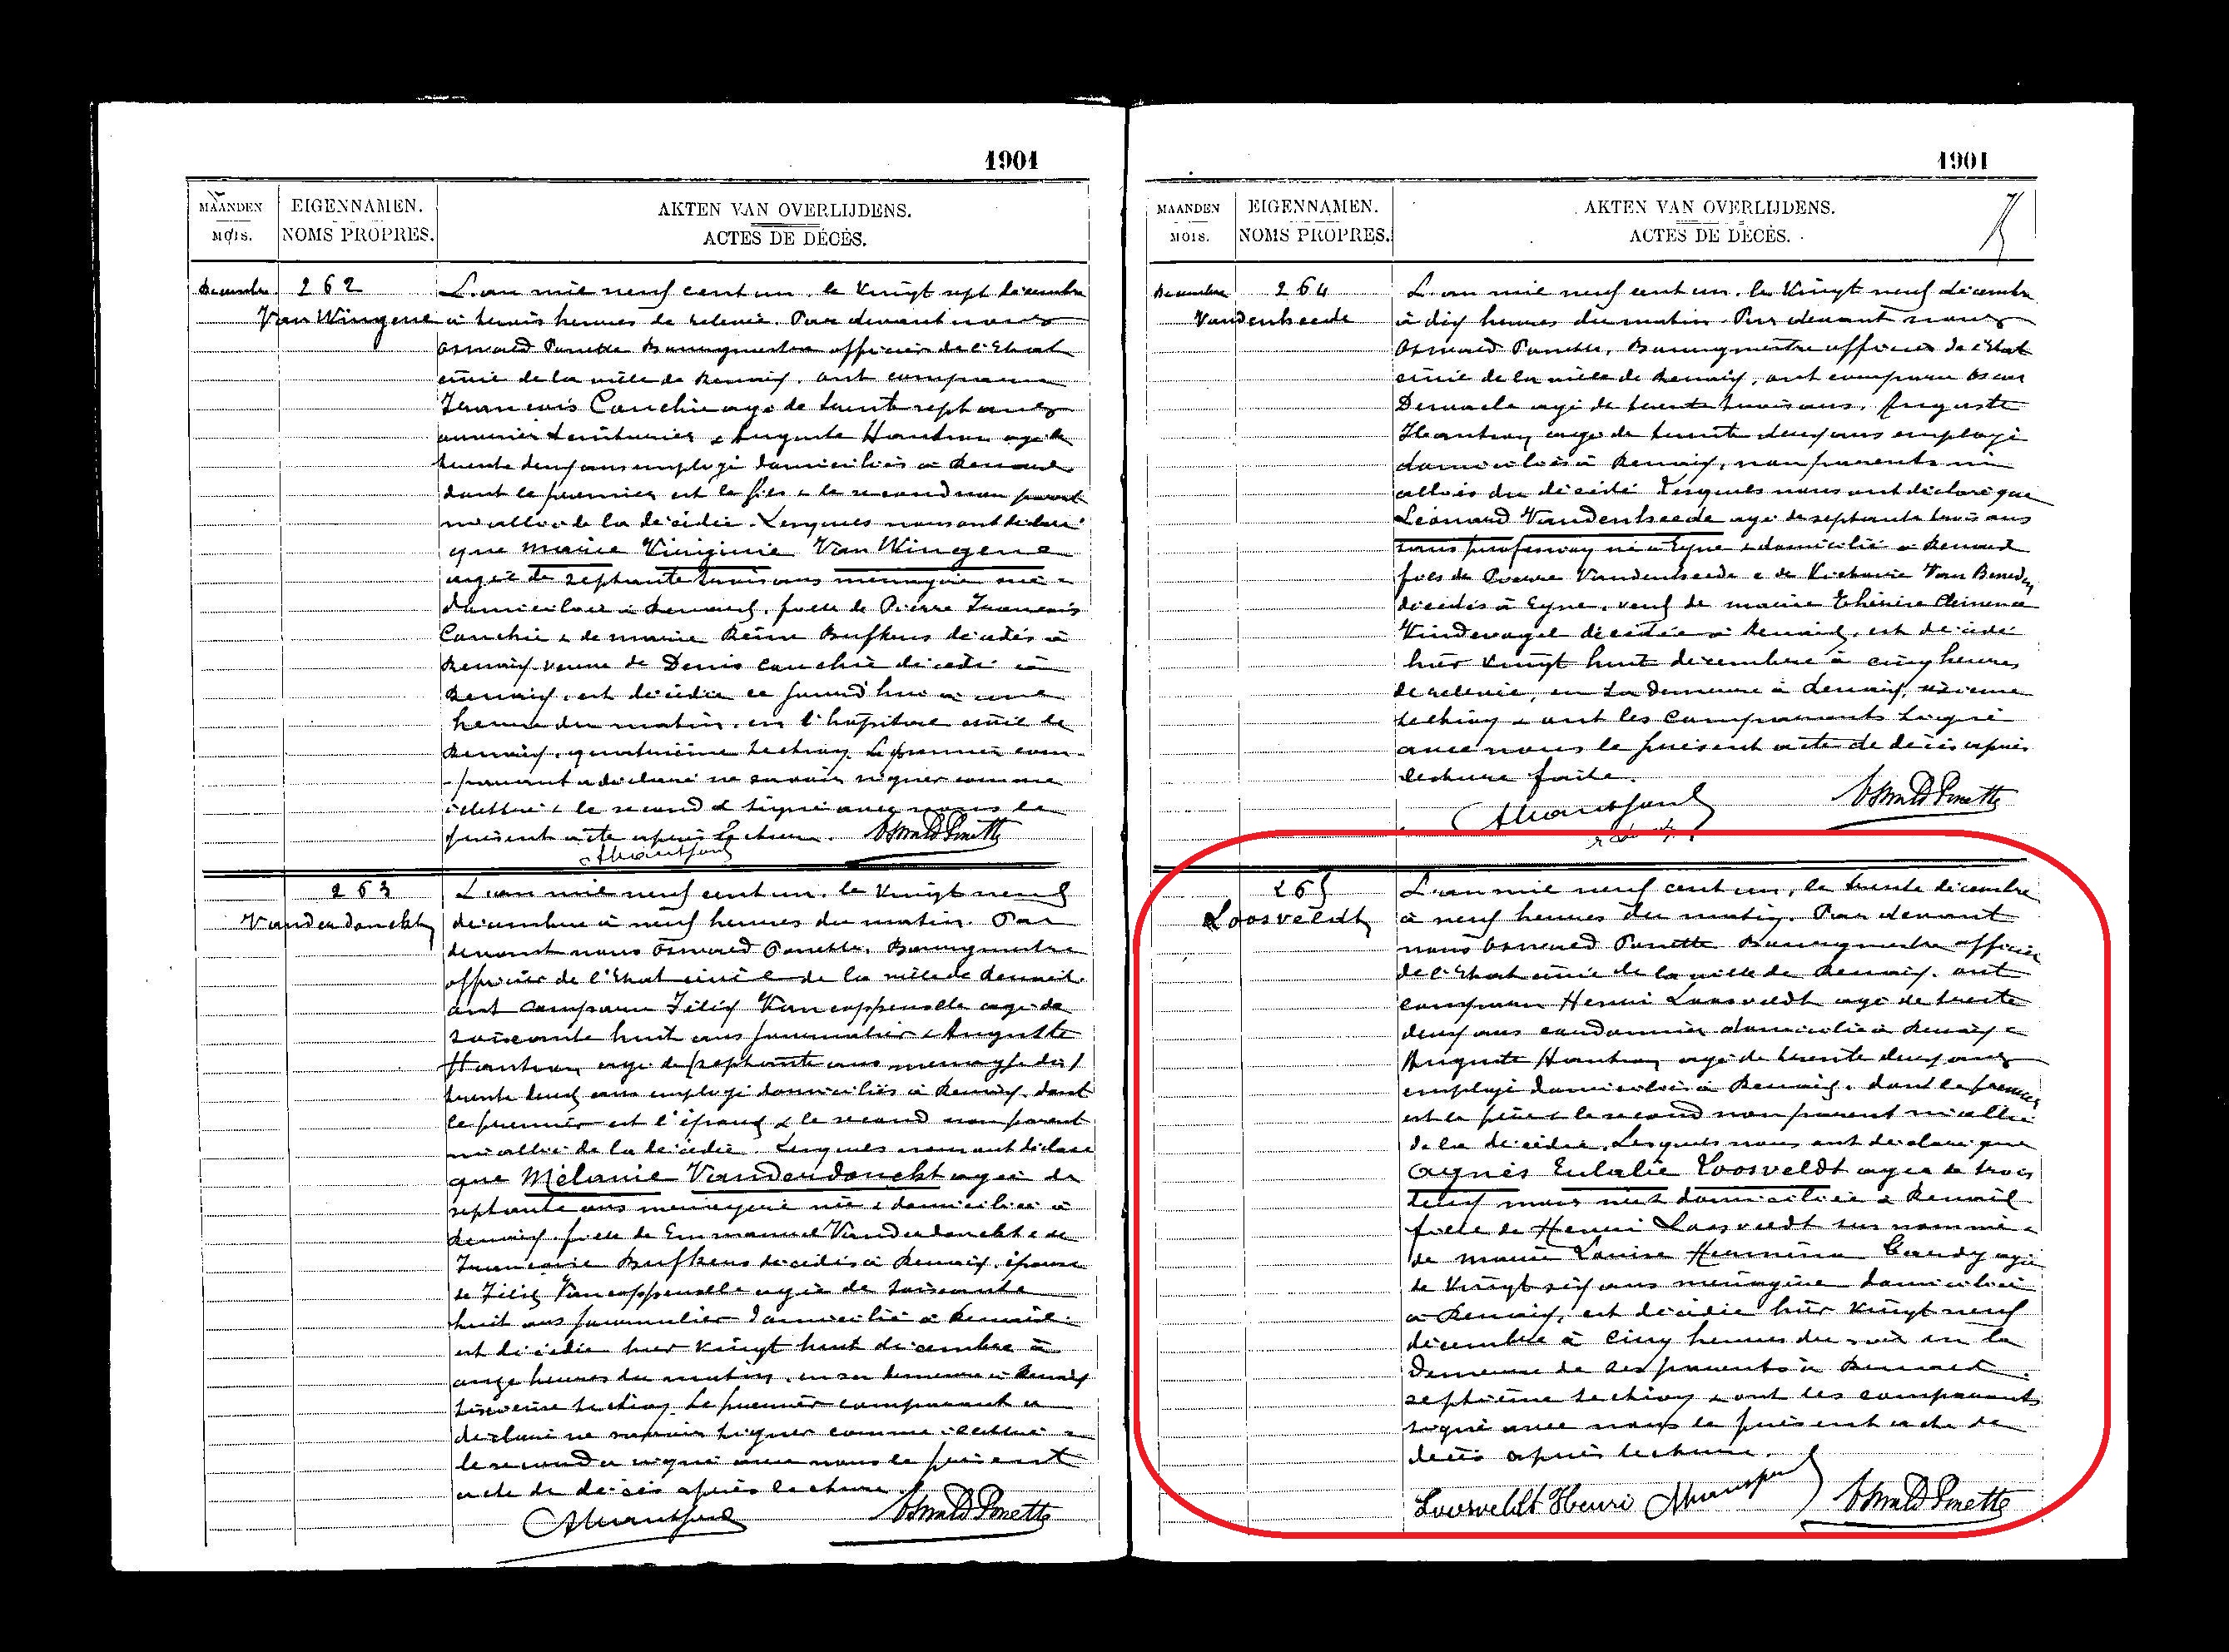 1901
MAANDEN
MOIS.
EIGENNAMEN.
NOMS PROPRES.
AKTEN VAN OVERLIJDENS.
ACTES DE DÉCÈS.
Decembre
262
Van Wingene
L'an mil neuf cent un, le vingt sept decembre
à trois heures de relevée. Par devant nous
Oswald Ponette Bourgmestre officier de l'Etat
civil de la ville de Renaix, ont comparu
François Cauchie agé de trente sept ans
ouvrier teinturier & Auguste Hantson agé de
trente deux ans employé domiciliés à Renaix
dont le premier est le fils & le second non parent
ni allié de la décédée. Lesquels nous ont déclaré
que Marie Virginie Van Wingene
agée de septante trois ans ménagère née &
domiciliée à Renaix, fille de Pierre François
Cauchie & de Marie Reine Bufkens décédés à
Renaix veuve de Denis Cauchie décédé à
Renaix, est décédée ce jourd'hui à une
heure du matin, en l'hôpital civil de
Renaix, quatrième section. Le premier com-
-parant a déclaré ne savoir signer comme
illettré & le second a signé avec nous le
présent acte après lecture. Oswald Ponette
263
Vanderdonckt
L'an mil neuf cent un, le vingt neuf
décembre à neuf heures du matin. Par
devant nous Oswald Ponette, Bourgmestre
officier de l'Etat civil de la ville de Renaix
ont comparu Félix Vancoppenolle agé de
soixante huit ans journalier & Auguste
Hantson agé de septante ans
trente deux ans employé domiciliés à Renaix, dont
le premier est l'époux & le second non parent
ni allié de la décédée. Lesquels nous ont déclaré
que Mélanie Vanderdonckt agée de
septante ans ménagère née & domiciliée à
Renaix fille de Emmanuel Vanderdonckt & de
Françoise Bufkens décédés à Renaix, épouse
de Félix Vancoppenolle agé de soixante
huit ans journalier domicilié à Renaix
est décédée hier vingt huit décembre à
onze heures du matin, en sa demeure à Renaix
section. Le premier comparant a
déclaré ne savoir signer comme illettré &
le second a signé avec nous le présent
acte de décès après lecture.
Oswald Ponette
1901
MAANDEN
MOIS.
EIGENNAMEN.
NOMS PROPRES.
AKTEN VAN OVERLIJDENS.
ACTES DE DÉCÈS.
Decembre
264
Vandenheede
L'an mil neuf cent un, le vingt neuf décembre
à dix heures du matin. Par devant nous
Oswald Ponette, Bourgmestre officier de l'Etat
civil de la ville de Renaix, ont comparu Oscar
agé de trente trois ans, Auguste
Hantson agé de trente deux ans employé
domiciliés à Renaix, non parents ni
alliés du décédé. Lesquels nous ont déclaré que
Léonard Vandenheede agé de septante trois ans
sans profession né à Eyne & domicilié à Renaix
fils de Pierre Vandenheede & de Victorie Van Beneden
décédés à Eyne, veuf de Marie Thérèse Clémence
Vindevogel décédée à Renaix, est décédé
hier vingt huit décembre à cinq heures
de relevée, en sa demeure à Renaix, sixième
section & ont les comparants signé
avec nous le présent acte de décès après
lecture faite.
Oswald Ponette
265
Loosveldt
L'an mil neuf cent un, le trente décembre
à neuf heures du matin. Par devant
nous Oswald Ponette Bourgmestre officier
de l'Etat civil de la ville de Renaix, ont
comparu Henri Loosveldt agé de trente
deux ans cordonnier domicilié à Renaix &
Auguste Hantson agé de trente deux ans
employé domicilié à Renaix, dont le premier
est le père & le second non parent ni allié
de la décédée. Lesquels nous ont déclaré que
Agnès Eulalie Loosveldt agée de trois
mois née & domiciliée à Renaix
fille de Henri Loosveldt sus nommé &
de Marie Louise Hermina Gaudy agée
de vingt six ans ménagère domiciliée
à Renaix, est décédée hier vingt neuf
décembre à cinq heures du soir en la
demeure de ses parents à Renaix
septième section & ont les comparants
signé avec nous le présent acte de
décès après lecture.
Loosveldt Henri Oswald Ponette